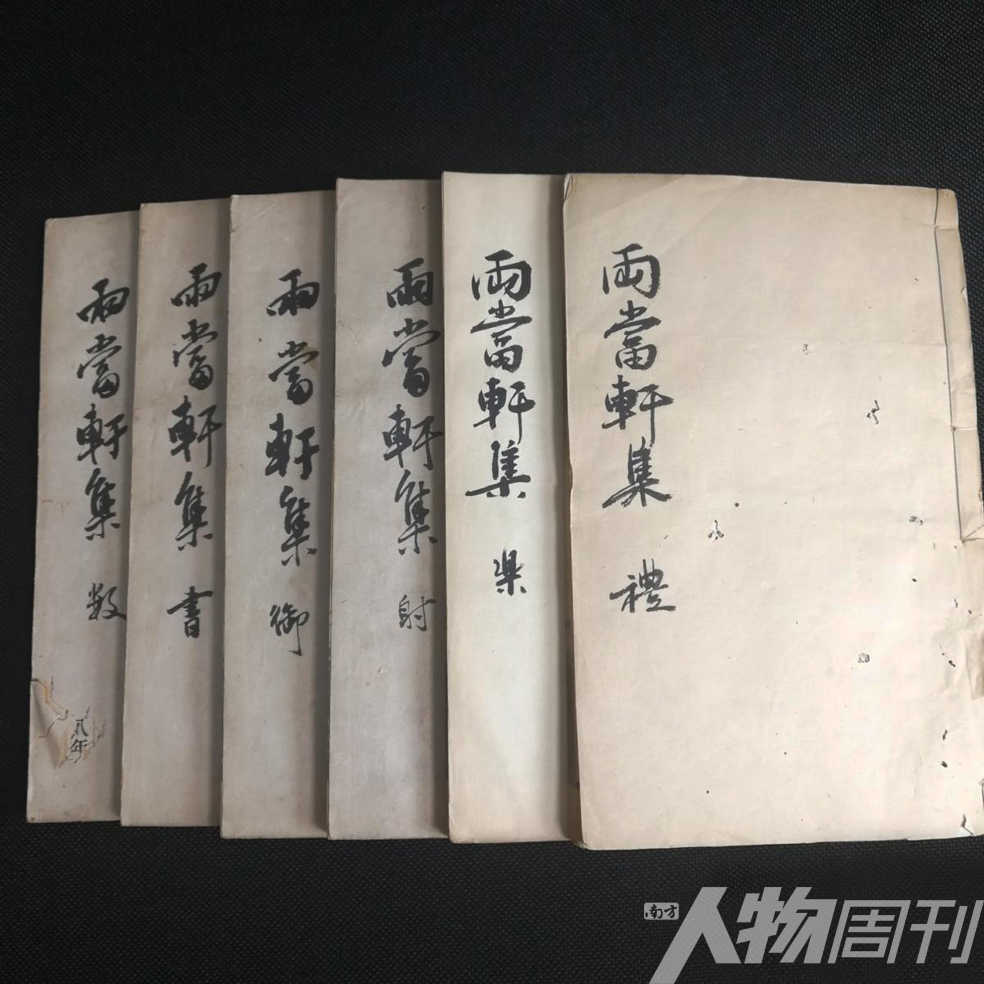 兩當軒集 禮
兩當軒集 樂
兩當軒集 射
兩當軒集 御
兩當軒集 書
兩當軒集 数
八年
南方
人物周刊